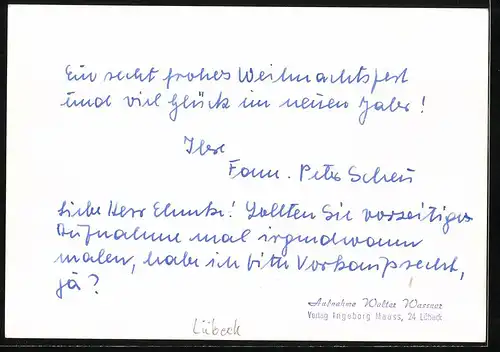 Ein recht frohes Weihnachtsfest
und viel Glück im neuen Jahr!
Ihre
Fam. Peter
Liebe Herr! Sollten Sie vorzeitige
Aufnahme mal irgendwann
malen, habe ich bitte Vorkaufsrecht,
ja?
Aufnahme Walter Wassner
Verlag Ingeborg Maass, 24 Lübeck
Lübeck